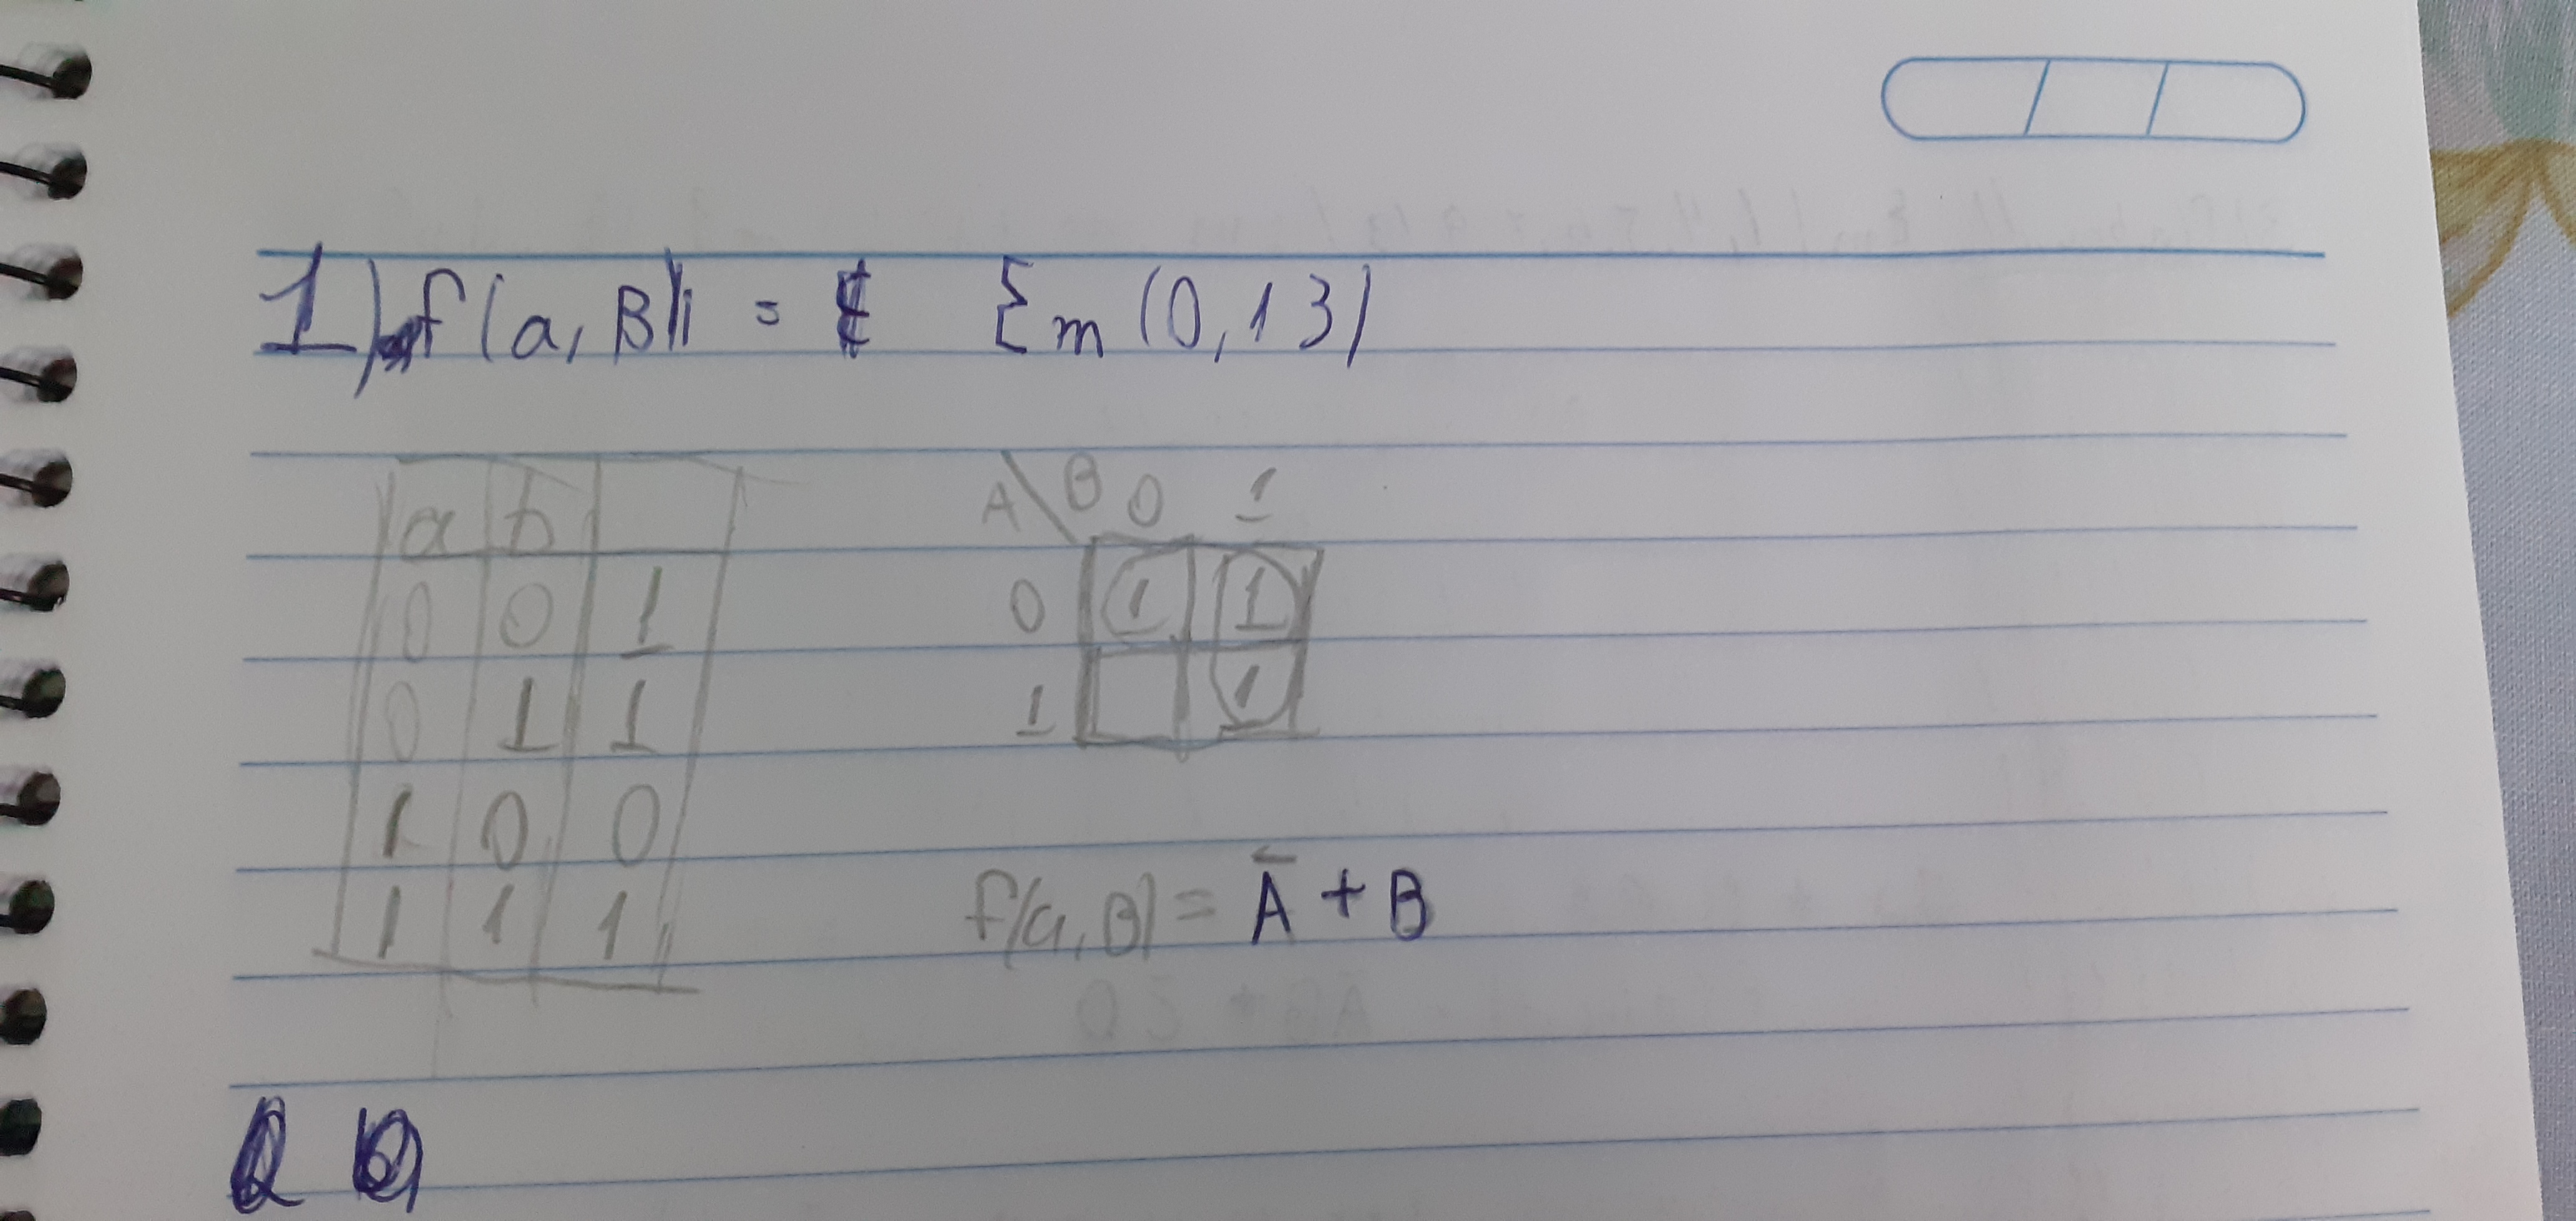 1) f(a, B) = Σm (0, 1 3)
a b
0 0 1
0 1 1
1 0 0
1 1 1
A \ B 0 1
0 1 1
1 1
f(a, B) = A̅ + B